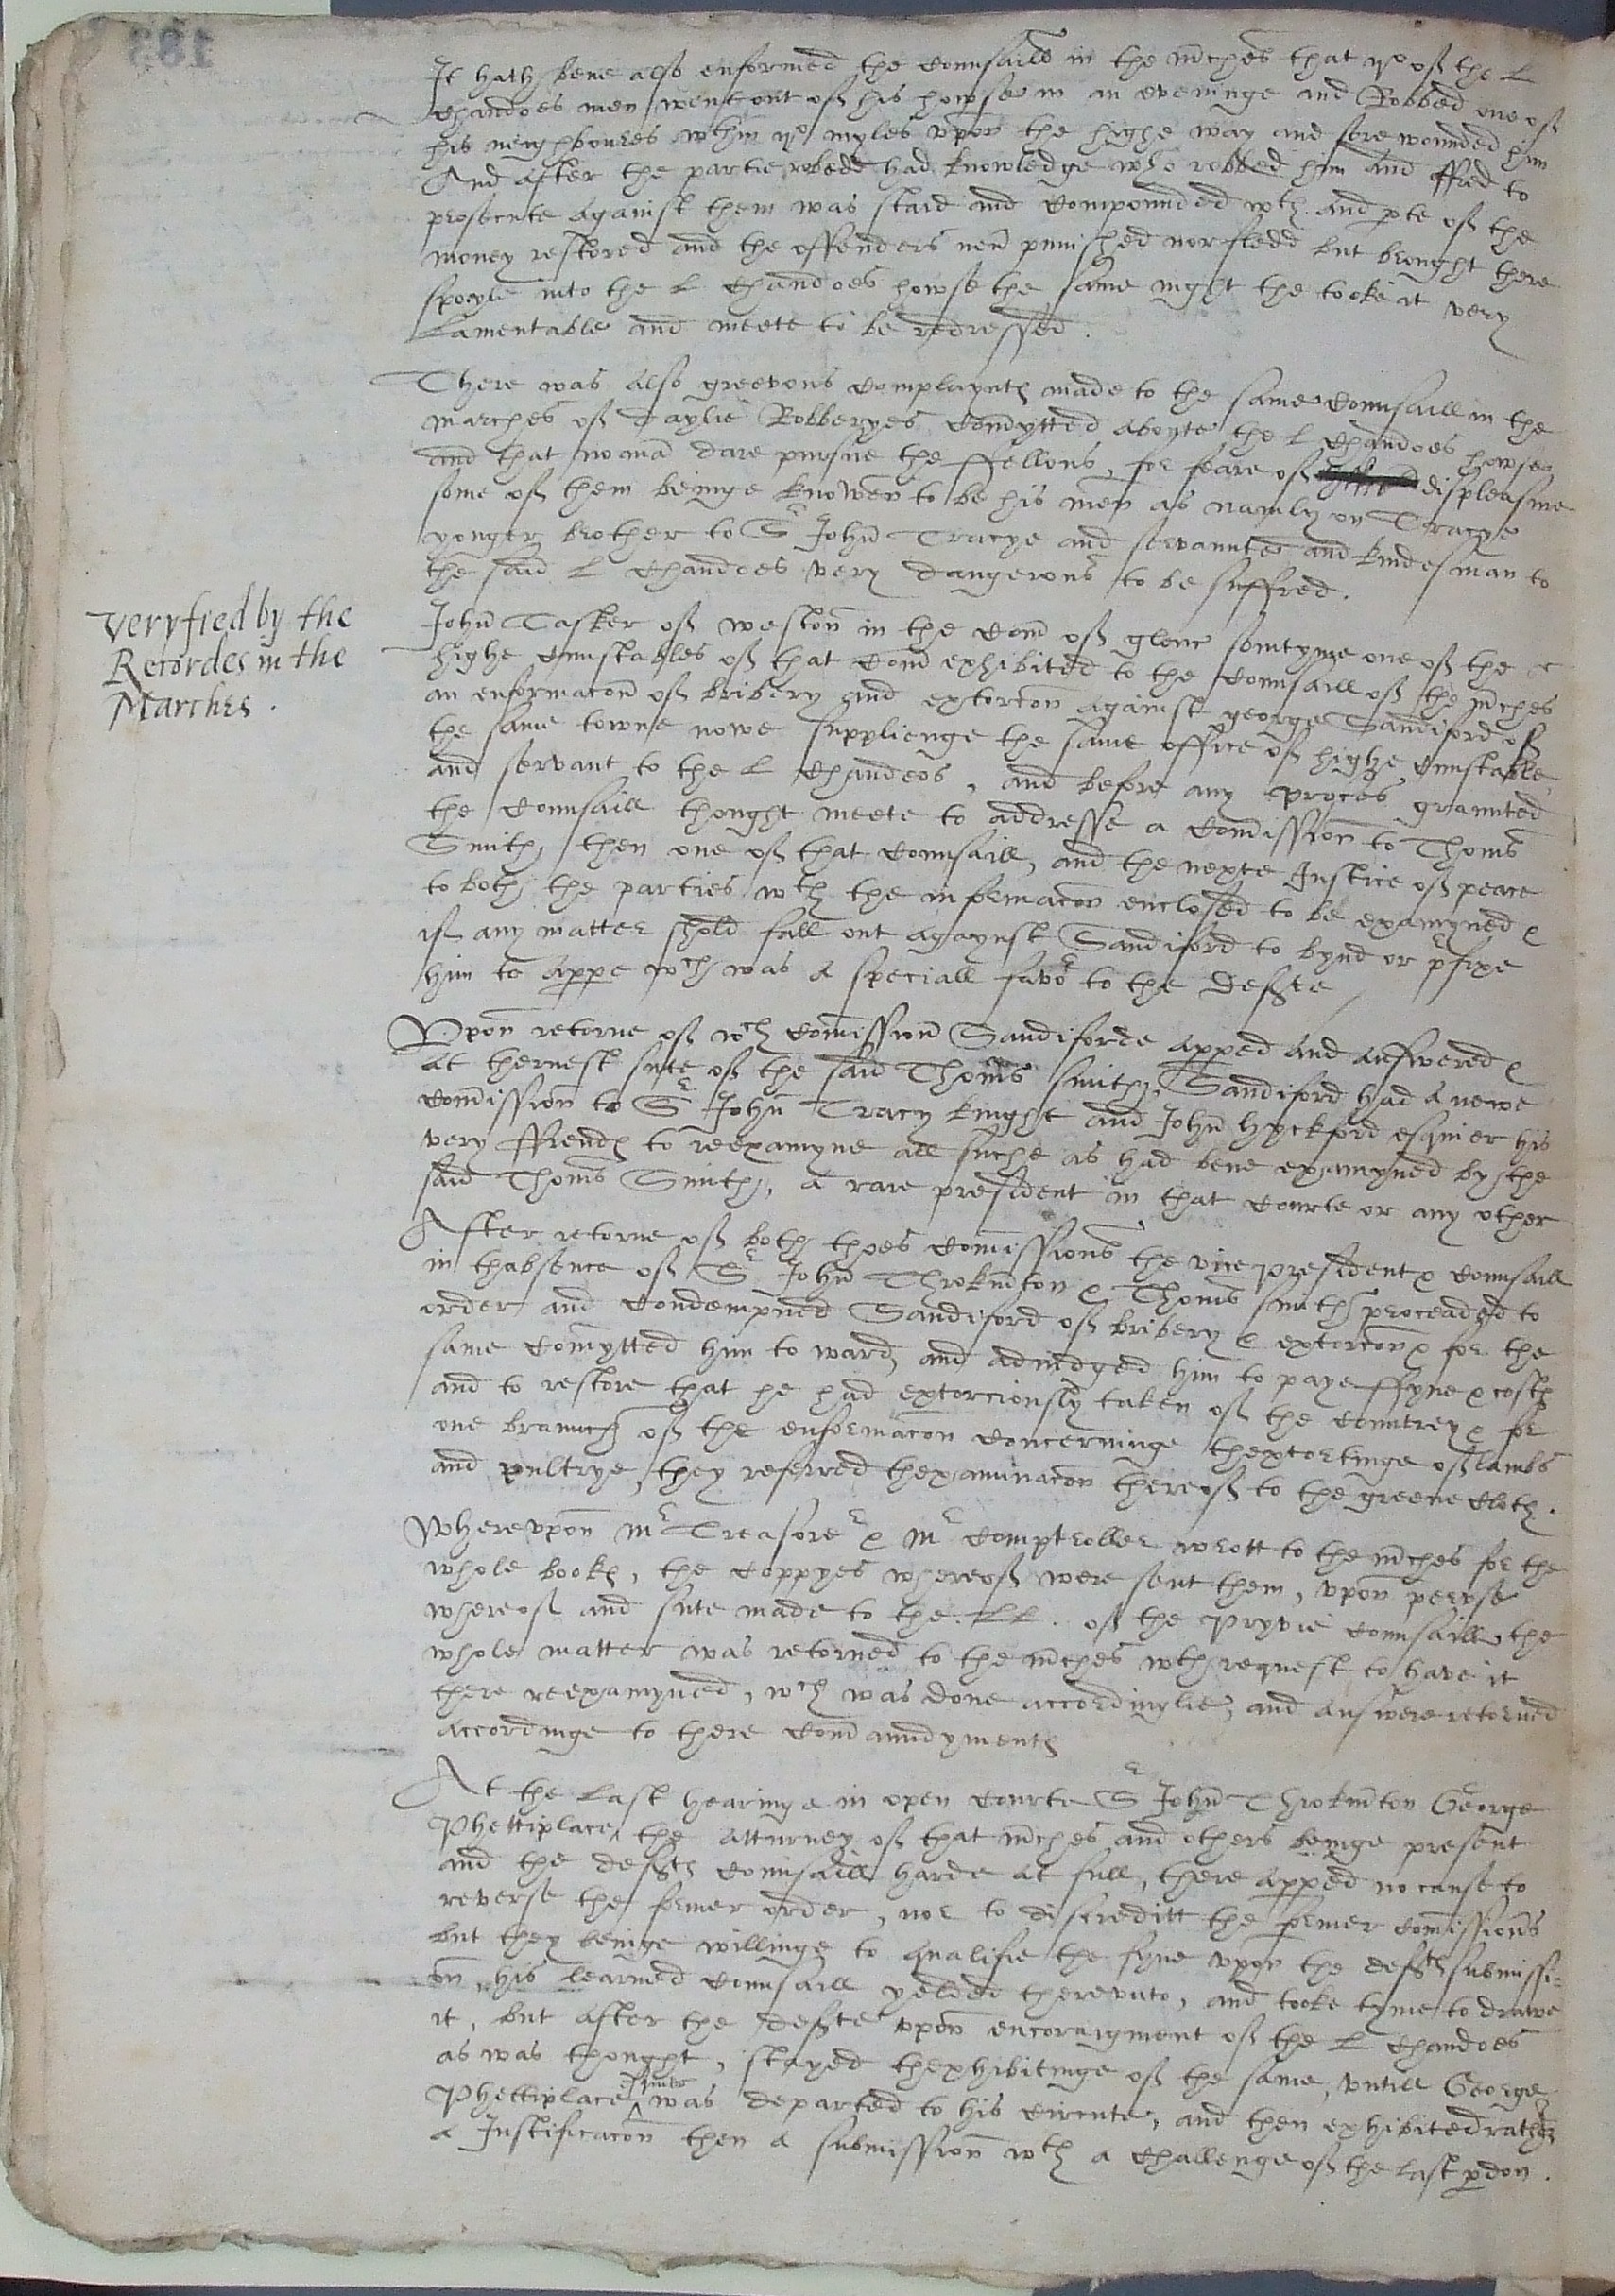 It hath bene also enformed the Counsaill in the m̃ches that ijo of the L
Chandoes men went out of his howse in an eveninge and Robbed one of
his neighboures wthin ijo myles vpon the highe way and sore wounded him
And after the partie robbed had knowledge who robbed him and offred to
prosecute against them was staid and Compounded wth and pte of the
money restored and the offenders neũ punished nor fledd but brought there
spoyle into the L Chandoes howse the same night the tooke it very
Lamentable and meete to be redressed.
There was also greevous Complaynts made to the same Counsaill in the
marches of Daylie Robberyes Com̃ytted aboute the L Chandoes howse
and that no man dare pursue the ffellons, for feare of displeasure
some of them beinge knowen to be his men as namly on Tracye
yonger brother to Sr John Tracye and servaunte and kindesman to
the said L Chandoes very dangerous to be suffred.
veryfied by the
Recordes in the
Marches.
John Tasker of weston in the Com̃ of glouc somtyme one of the
highe Cunstables of that Com̃ exhibited to the Counsaill of the m̃ches
an enformacon of bribery and extorcon against george Sandiford of
the same towne nowe supplienge the same office of highe Cunstable
and servant to the L Chandeos, and before any proces graunted
the Counsaill thought meete to addresse a Com̃ission to Thom̃s
Smith, then one of that Counsaill, and the nexte Justice of peace
to both the parties wth the informacon enclosed to be examyned &
if any matter shold fall out agaynst Sandiford to bynd or pfixe
him to appe wch was a speciall favor to the Deft
Vpon retorne of wch Com̃ission Sandiforde apped and answered &
at thernest sute of the said Thom̃s Smith, Sandiford had a newe
Com̃ission to Sr John Tracy knight and John hyckford esquier his
very ffrends to reexamyne all suche as had bene examyned by the
said Thom̃s Smith, a rare president in that Courte or any other
After retorne of both thoes Com̃issions the vice president & Counsaill
in thabsence of Sr John Throkm̃ton & Thom̃s smith proceaded to
order and Condempned Sandiford of bribery & extorcon & for the
same Com̃ytted him to ward, and adiudged him to paye ffyne & costs
and to restore that he had extorciously taken of the Countrey & for
one braunch of the enformacon Concerninge thextortinge of lambs
and pultrye, they referred thexaminacon thereof to the greene Cloth.
Wherevpon mr Treasorer & mr Comptroller wrott to the m̃ches for the
whole books, the Coppyes whereof were sent them, vpon pervse
whereof and sute made to the .LL. of the pryvie Counsaill, the
whole matter was retorned to the m̃ches wth request to have it
there reexamyned, wch was done accordinglie, and answere retorned
accordinge to there Com̃aundyments
At the last hearinge in open Courte Sr John Throkm̃ton George
Phettiplace, the Atturney of that m̃ches and others beinge present
and the defts Counsaill harde at full, there apped no cause to
reverse the former order, nor to discreditt the former Com̃issions
but they beinge willinge to qualifie the fyne vpon the defts submissi-
on, his learned Counsaill yelded therevnto, and tooke tyme to drawe
it, but after the Defte vpon encoraigment of the L Chandoes
as was thought, stayed thexhibitinge of the same, vntill George
Phettiplace was departed to his Circute, and then exhibited rather
a Justificacon then a submission wth a Challenge of the last pdon.